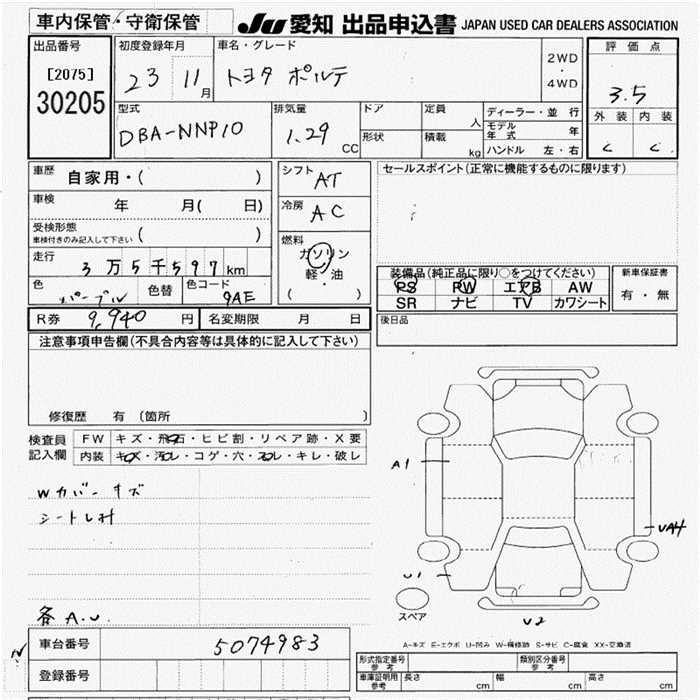 車内保管・守衛保管
JU 愛知 出品申込書 JAPAN USED CAR DEALERS ASSOCIATION
出品番号
[2075]
30205
初度登録年月
23 11月
車名・グレード
トヨタ ポルテ
2WD
・
4WD
評価点
3.5
外装 内装
C C
型式
DBA-NNP10
排気量
1.29 CC
ドア
形状
定員 人
積載 kg
ディーラー・並行
モデル年式 年
ハンドル 左・右
車歴 自家用・( )
車検 年 月( 日)
受検形態
車検付きのみ記入して下さい ( )
走行 3万5千597km
色 パープル 色替 色コード 9AE
シフト AT
冷房 AC
燃料
ガソリン
軽・油
( )
セールスポイント(正常に機能するものに限ります)
装備品(純正品に限り○をつけてください)
PS PW エアB AW
SR ナビ TV カワシート
新車保証書
有・無
R券 9,940円 名変期限 月 日
後日品
注意事項申告欄(不具合内容等は具体的に記入して下さい)
修復歴 有 〔箇所 〕
検査員記入欄
FW キズ・飛石・ヒビ割・リペア跡・X要
内装 キズ・汚レ・コゲ・穴・スレ・キレ・破レ
Wカバーキズ
A1
UA4
U1
U2
スペア
各A.U.
A-キズ E-エクボ U-凹み W-補修跡 S-サビ C-腐食 XX-交換済
車台番号 5074983
登録番号
形式指定番号 参考
類別区分番号 参考
車庫証明用 参考 長さ cm 幅 cm 高さ cm